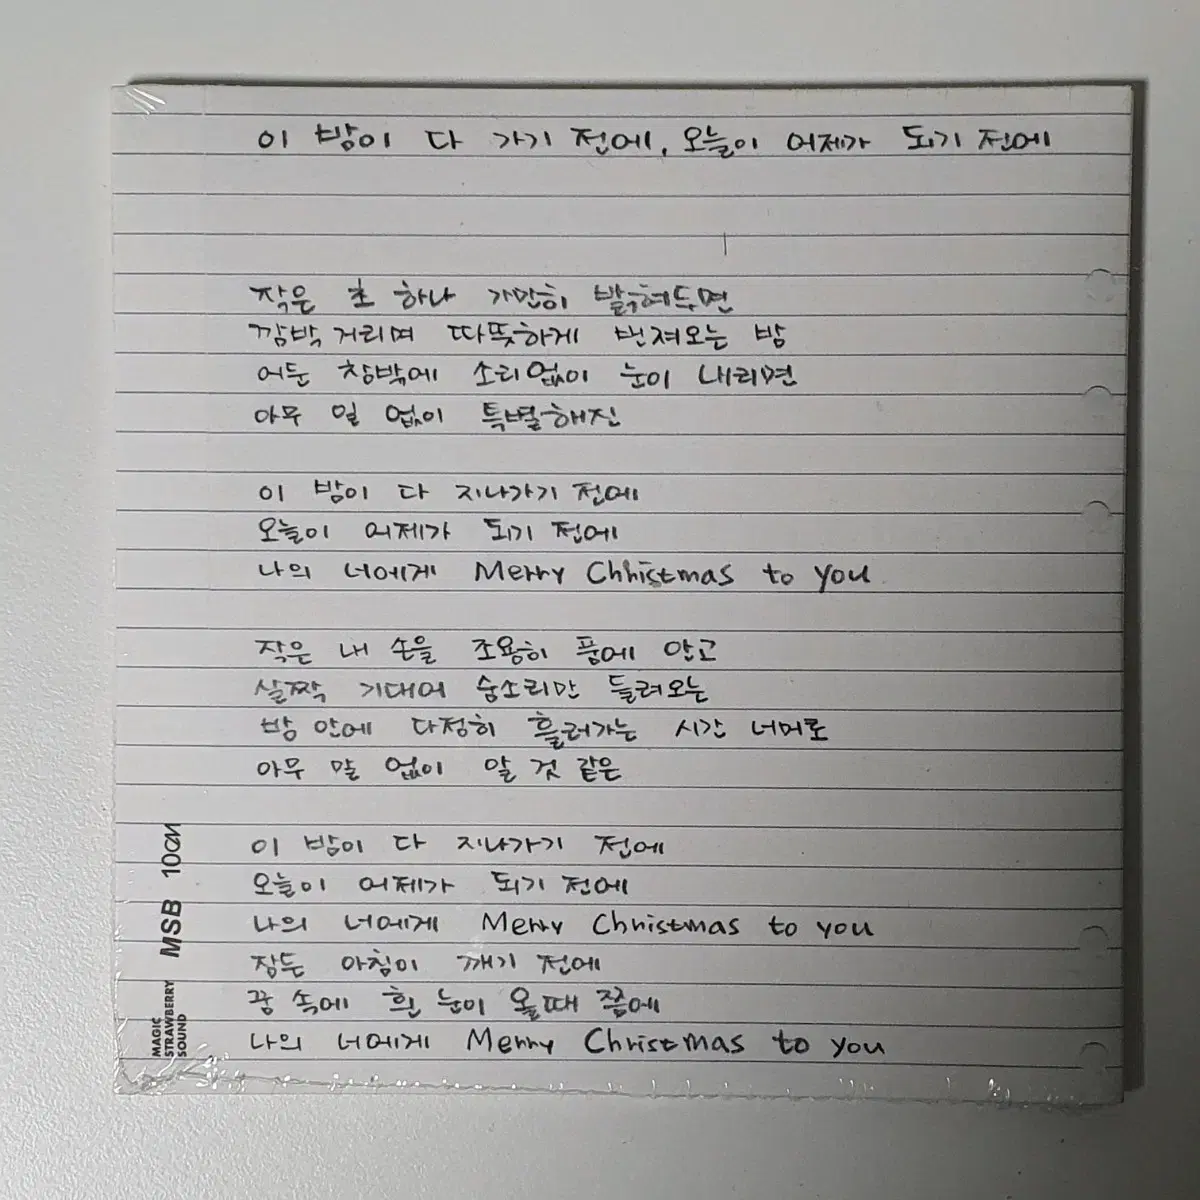 이 밤이 다 가기 전에, 오늘이 어제가 되기 전에
작은 초 하나 가만히 밝혀두면
깜박 거리며 따뜻하게 번져오는 밤
어둔 창밖에 소리없이 눈이 내리면
아무 일 없이 특별해진
이 밤이 다 지나가기 전에
오늘이 어제가 되기 전에
나의 너에게 Merry Christmas to you
작은 내 손을 조용히 품에 안고
살짝 기대어 숨소리만 들려오는
밤 안에 다정히 흘러가는 시간 너머로
아무 말 없이 알 것 같은
이 밤이 다 지나가기 전에
오늘이 어제가 되기 전에
나의 너에게 Merry Christmas to you
잠든 아침이 깨기 전에
꿈 속에 흰 눈이 올때 쯤에
나의 너에게 Merry Christmas to you
MAGIC
STRAWBERRY
SOUND
MSB 10cm